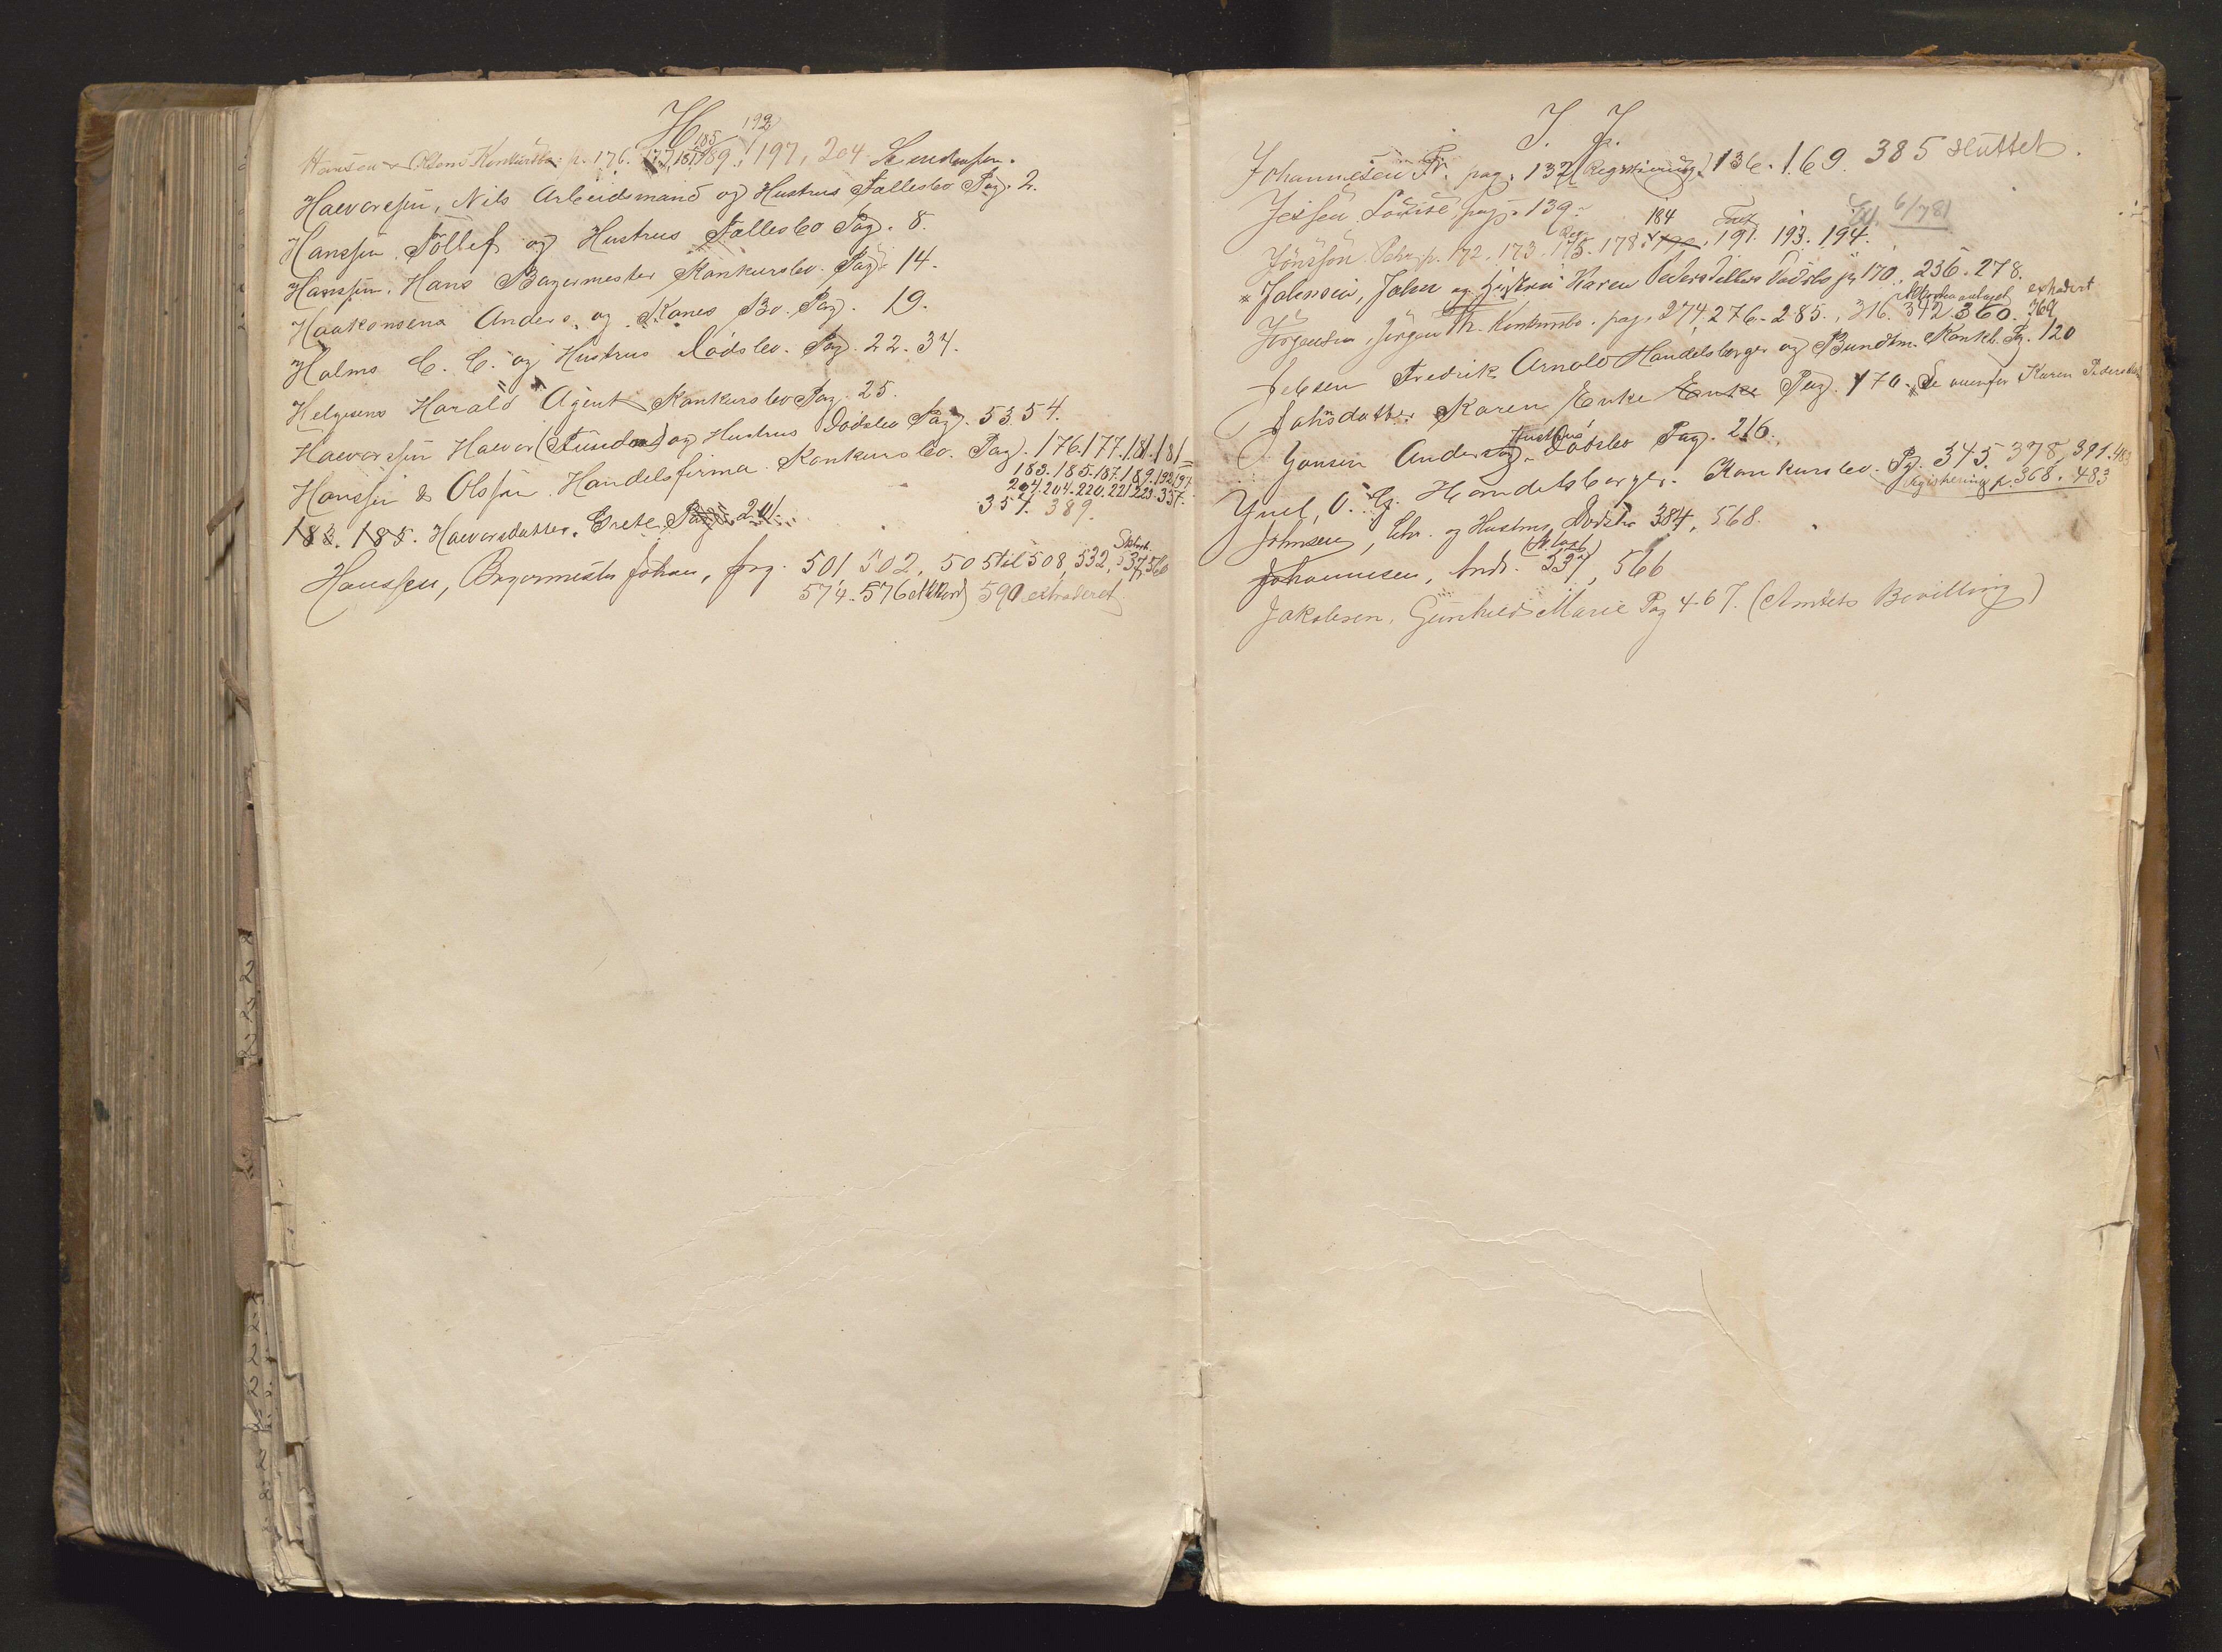 H
185 192
Hansen & Olsens Konkursbo p. 176. 177, 181, 189, 197, 204
Halvorssen, Nils Arbeidsmand og Hustrus Fællesbo Pag. 2.
Hanssen, Tollef og Hustrus Fællesbo Pag. 8.
Hanssen, Hans Bagermester Konkursbo. Pag. 14.
Haakonsens Anders, og Kones Bo. Pag. 19.
Holms C. C. og Hustrus Dødsbo. Pag. 22. 34.
Helgesens Harald Agent Konkursbo Pag. 25.
Halvorssen Halvor og Hustrus Dødsbo Pag. 53. 54.
Hanssen & Olssen Handelsfirma. Konkursbo. Pag. 176. 177. 181. 181
183. 185. 187. 189. 192. 197.
204. 204. 220. 221 223. 357.
357. 389.
183. 185. Halvorsdatter, Grete, Pag. 201.
Hanssen, Bagermester Johan, pag. 501 502, 505 til 508, 532, 537, 560
574. 576 akkord 590 extraderet.
I. J.
Johannesen Fr. pag. 132 (Registrering) 136. 169. 385 sluttet.
Jessen Louise pag. 139.
184
Ext. 6/7 81
Jönssön Pehr p. 172. 173. 175. 178. 191. 193. 194.
* Johnsen, John og Hustru Karen Pedersdatters Dødsbo p. 170. 236. 278.
extradert
Jörgensen, Jörgen Th. Konkursbo. pag. 274, 276. 285., 316. 342. 360. 369
Jebsen Fredrik Arnold Handelsborger og Bundtm. Konkb. Pg. 120
Johnsdatter Karen Enke Enke Pag. 170. Se ovenfor Karen Pedersdatter
Hustrus
Jonsen Anders og Dødsbo Pag. 216.
Juel, O. G. Handelsborger. Konkursbo. Pg. 345. 378, 391. 483
Registrering p. 368. 483
Johnsen, Chr. og Hustrus Dødsbo 384, 568.
Johannesen, And. 537, 566
Jakobsen, Gunhild Marie Pag 467. (Amtets Bevilling)